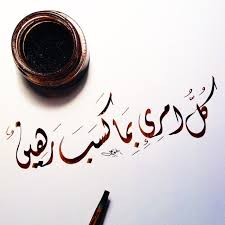 كُلُّ امْرِئٍ بِمَا كَسَبَ رَهِينٌ